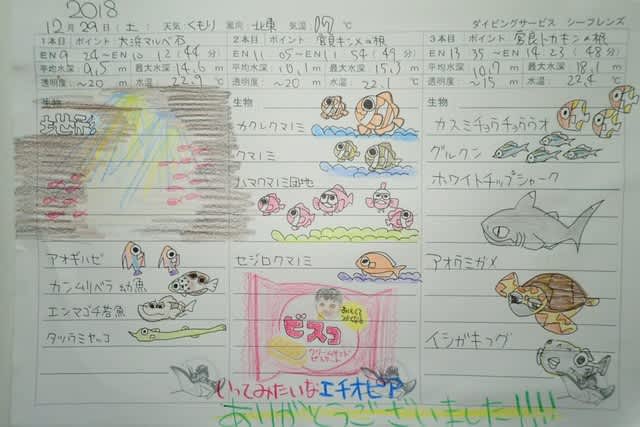 2018
12月29日(土) 天気:くもり 風向:北東 気温:17℃ ダイビングサービス シーフレンズ
1本目 ポイント 大浜マルベ石
EN 9 24 ~EN 10 12 (44分)
平均水深 9.5m 最大水深 14.6m
透明度 ~20m 水温: 22.9℃
生物
地形
アオギハゼ
カンムリベラ幼魚
エンマゴチ若魚
タツウミヤッコ
2本目 ポイント 宮良キンメの根
EN 11 05 ~EN 11 54 (49分)
平均水深 10.1m 最大水深 15.3m
透明度 ~20m 水温: 22.1℃
生物
カクレクマノミ
クマノミ
ハマクマノミ団地
セジロクマノミ
ビスコ
3本目 ポイント 宮良トカキンの根
EN 13 35 ~EN 14 23 (48分)
平均水深 10.7m 最大水深 18.1m
透明度 ~15m 水温: 22.4℃
生物
カスミチョウチョウウオ
グルクン
ホワイトチップシャーク
アオウミガメ
イシガキフグ
いってみたいなエチオピア
ありがとうございました!!!!